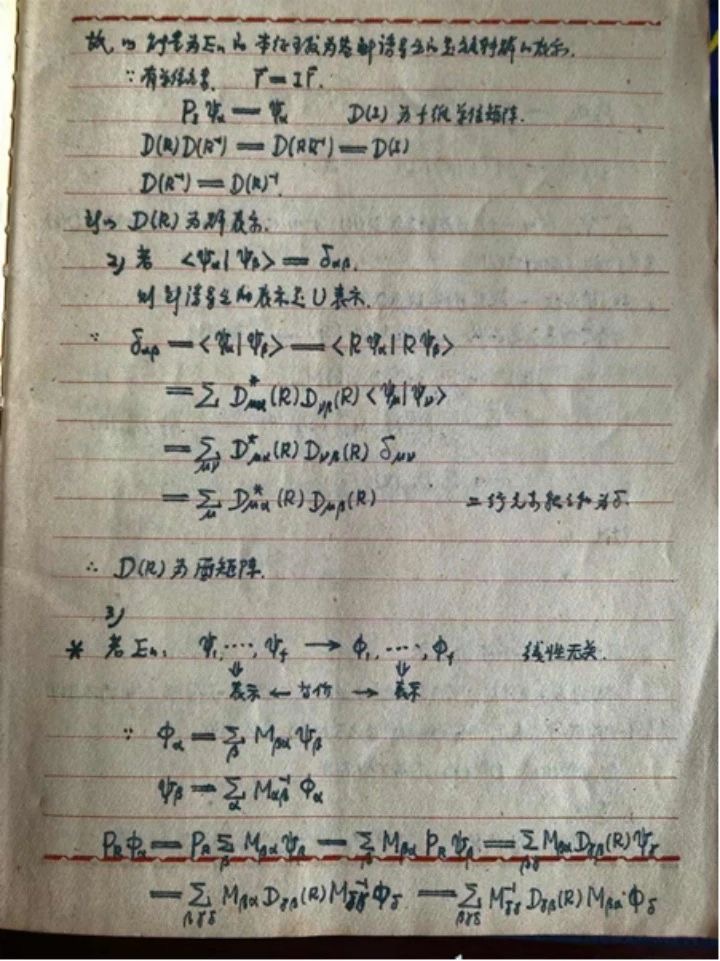 故，以能量为En的本征函数为基
∵ 有单位元素, r⃗ = I r⃗.
P_I ψ_α = ψ_α D(I) 为 f 维单位矩阵.
D(R)D(R⁻¹) = D(RR⁻¹) = D(I)
D(R⁻¹) = D(R)⁻¹.
所以 D(R) 为群表示.
2) 若 <ψ_α|ψ_β> = δ_αβ.
则 的表示是 U 表示.
∵ δ_αβ = <ψ_α|ψ_β> = <Rψ_α|Rψ_β>
= Σ D*_μα(R) D_νβ(R) <ψ_μ|ψ_ν>
= Σ_μν D*_μα(R) D_νβ(R) δ_μν
= Σ_μ D*_μα(R) D_μβ(R) 为δ.
∴ D(R) 为酉矩阵.
3)
* 若 En, ψ₁, ⋯, ψ_f → φ₁, ⋯, φ_f 线性无关.
⇓ ⇓
表示 ← 等价 → 表示
∵ φ_α = Σ_β M_βα ψ_β
ψ_β = Σ_α M⁻¹_αβ φ_α
P_R φ_α = P_R Σ_β M_βα ψ_β = Σ_β M_βα P_R ψ_β = Σ_βγ M_βα D_γβ(R) ψ_γ
= Σ_βγδ M_βα D_γβ(R) M⁻¹_δγ φ_δ = Σ_βγδ M⁻¹_δγ D_γβ(R) M_βα φ_δ